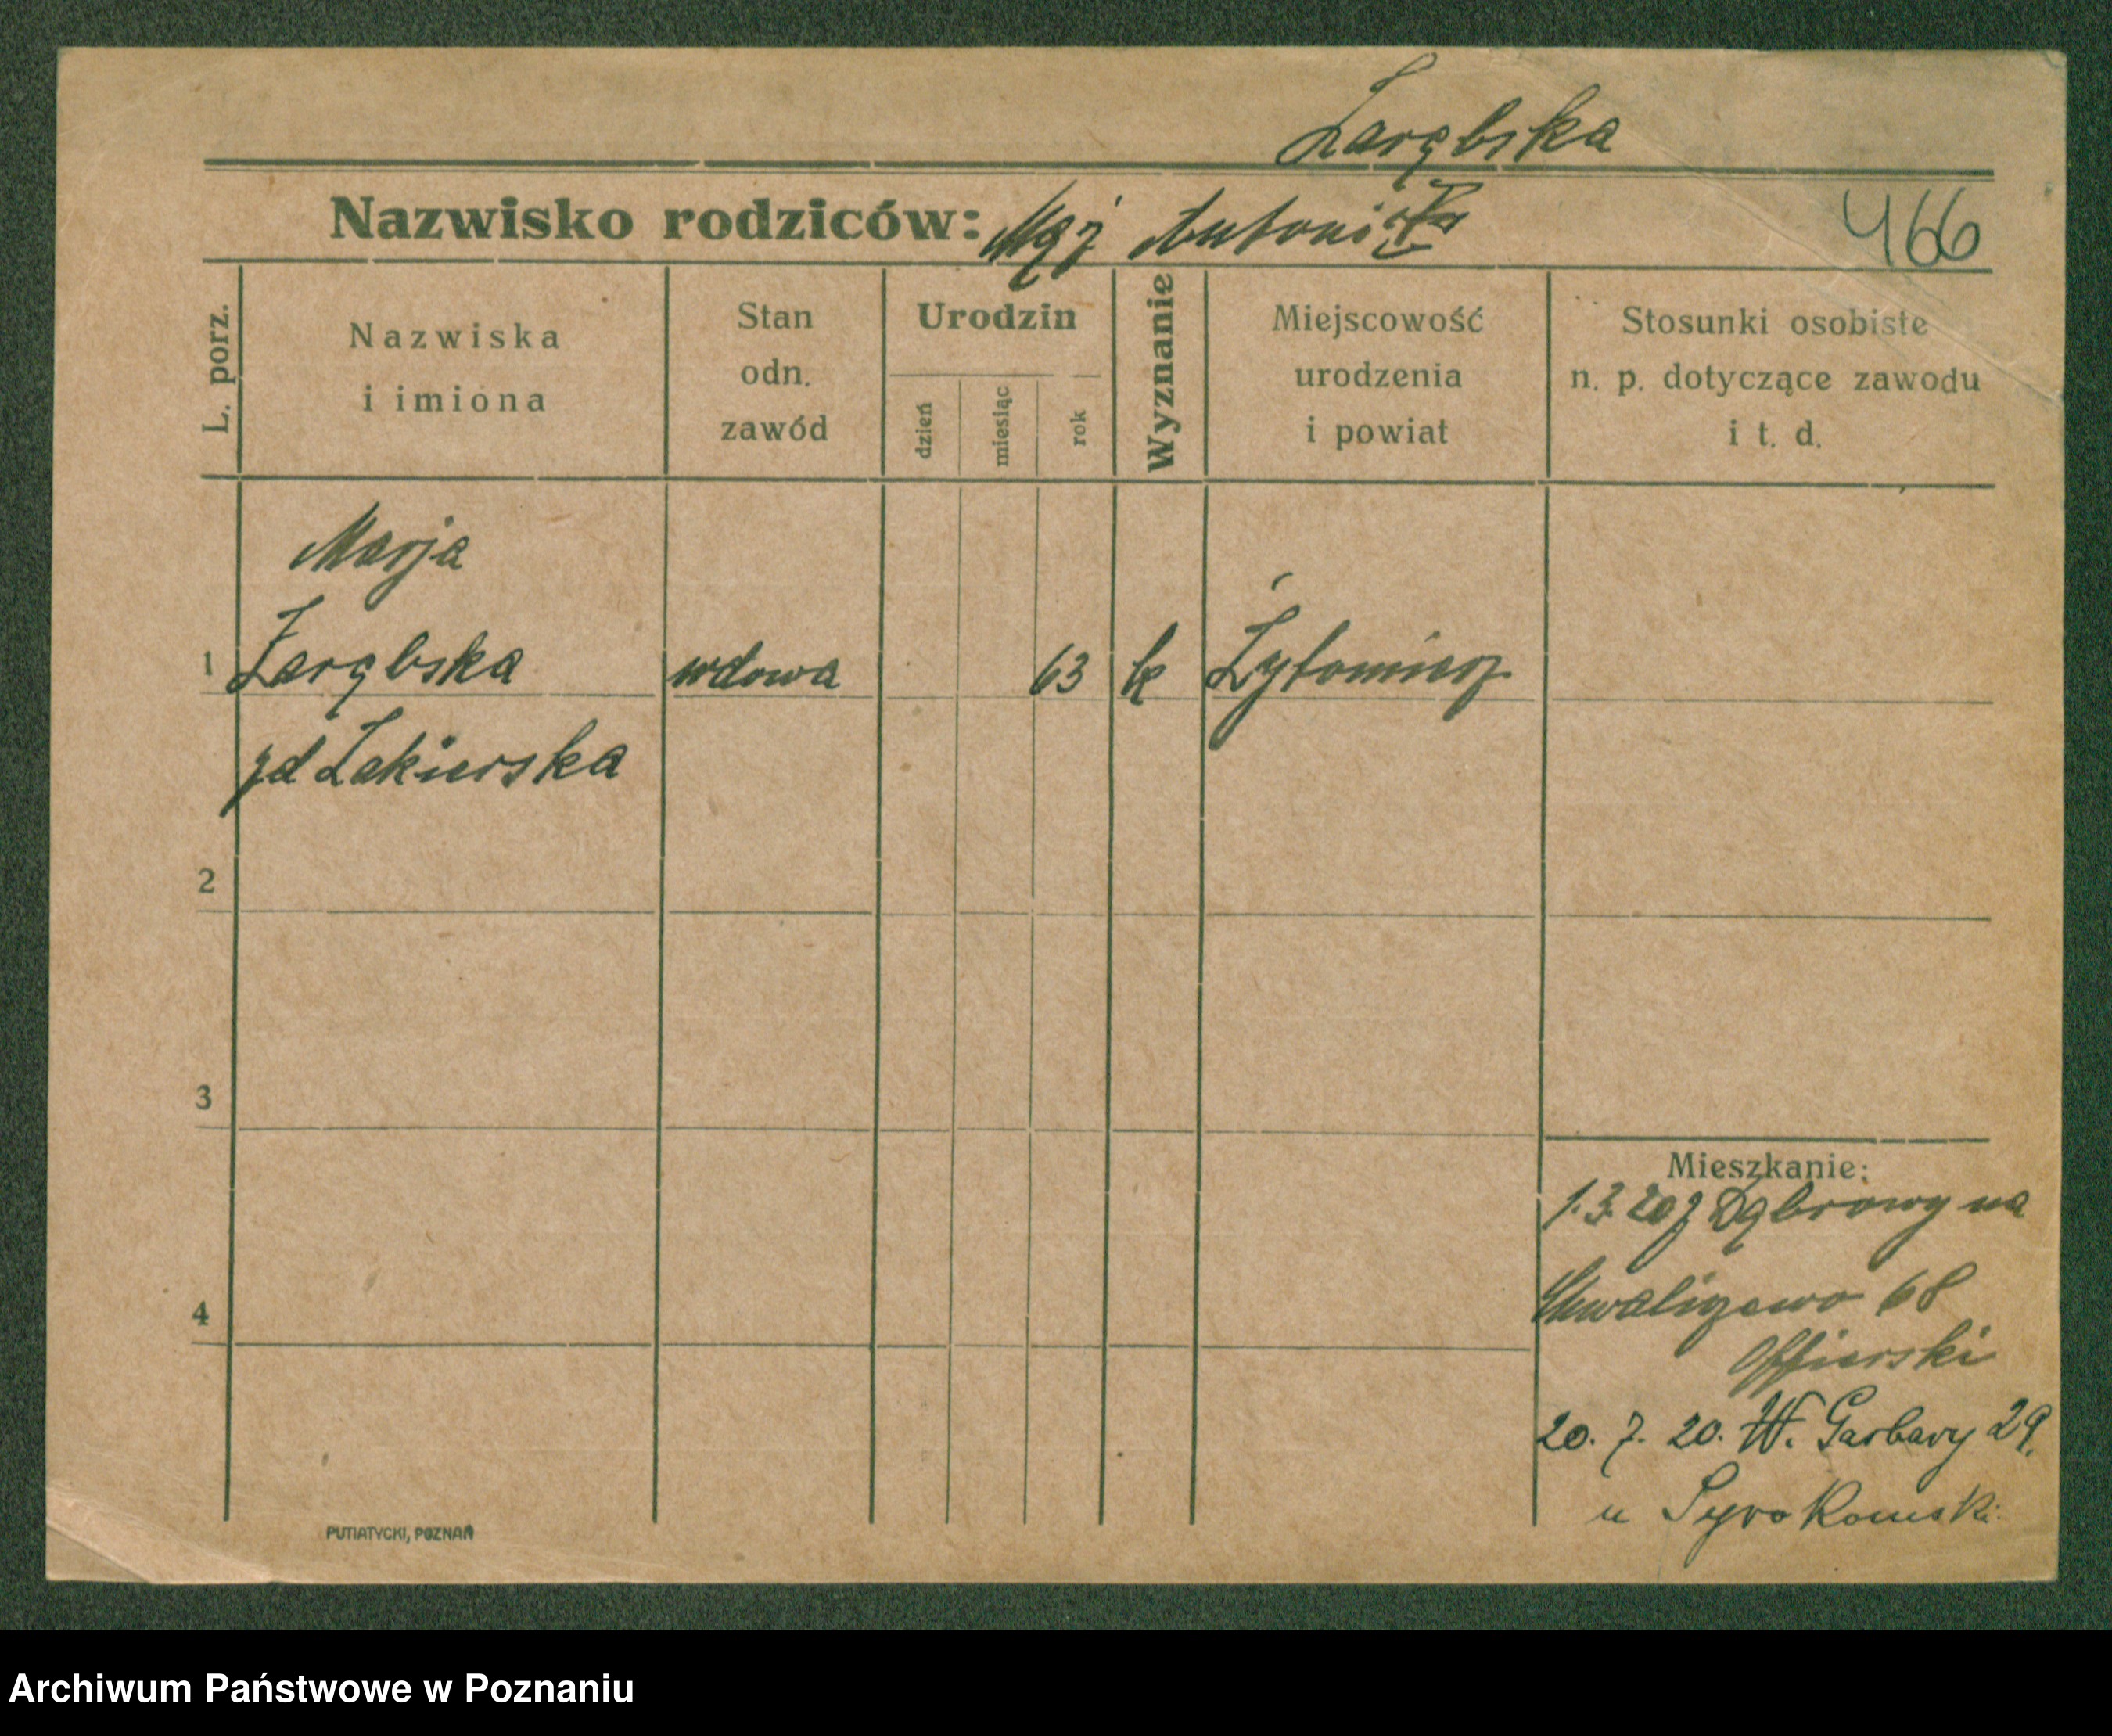 Zarębska
Nazwisko rodziców: Mąż Antoni
466
L. porz.
Nazwiska
i imiona
Stan
odn.
zawód
Urodzin
dzień
miesiąc
rok
Wyznanie
Miejscowość
urodzenia
i powiat
Stosunki osobiste
n. p. dotyczące zawodu
i t. d.
Marja
1 Zarębska wdowa 63 k Żytomierz
zd Zakierska
2
3
4
Mieszkanie:
1.3.20 z Dąbrowy na
68
20. 7. 20. W. Garbary 29.
u Syrokomski
PUTIATYCKI, POZNAŃ
Archiwum Państwowe w Poznaniu